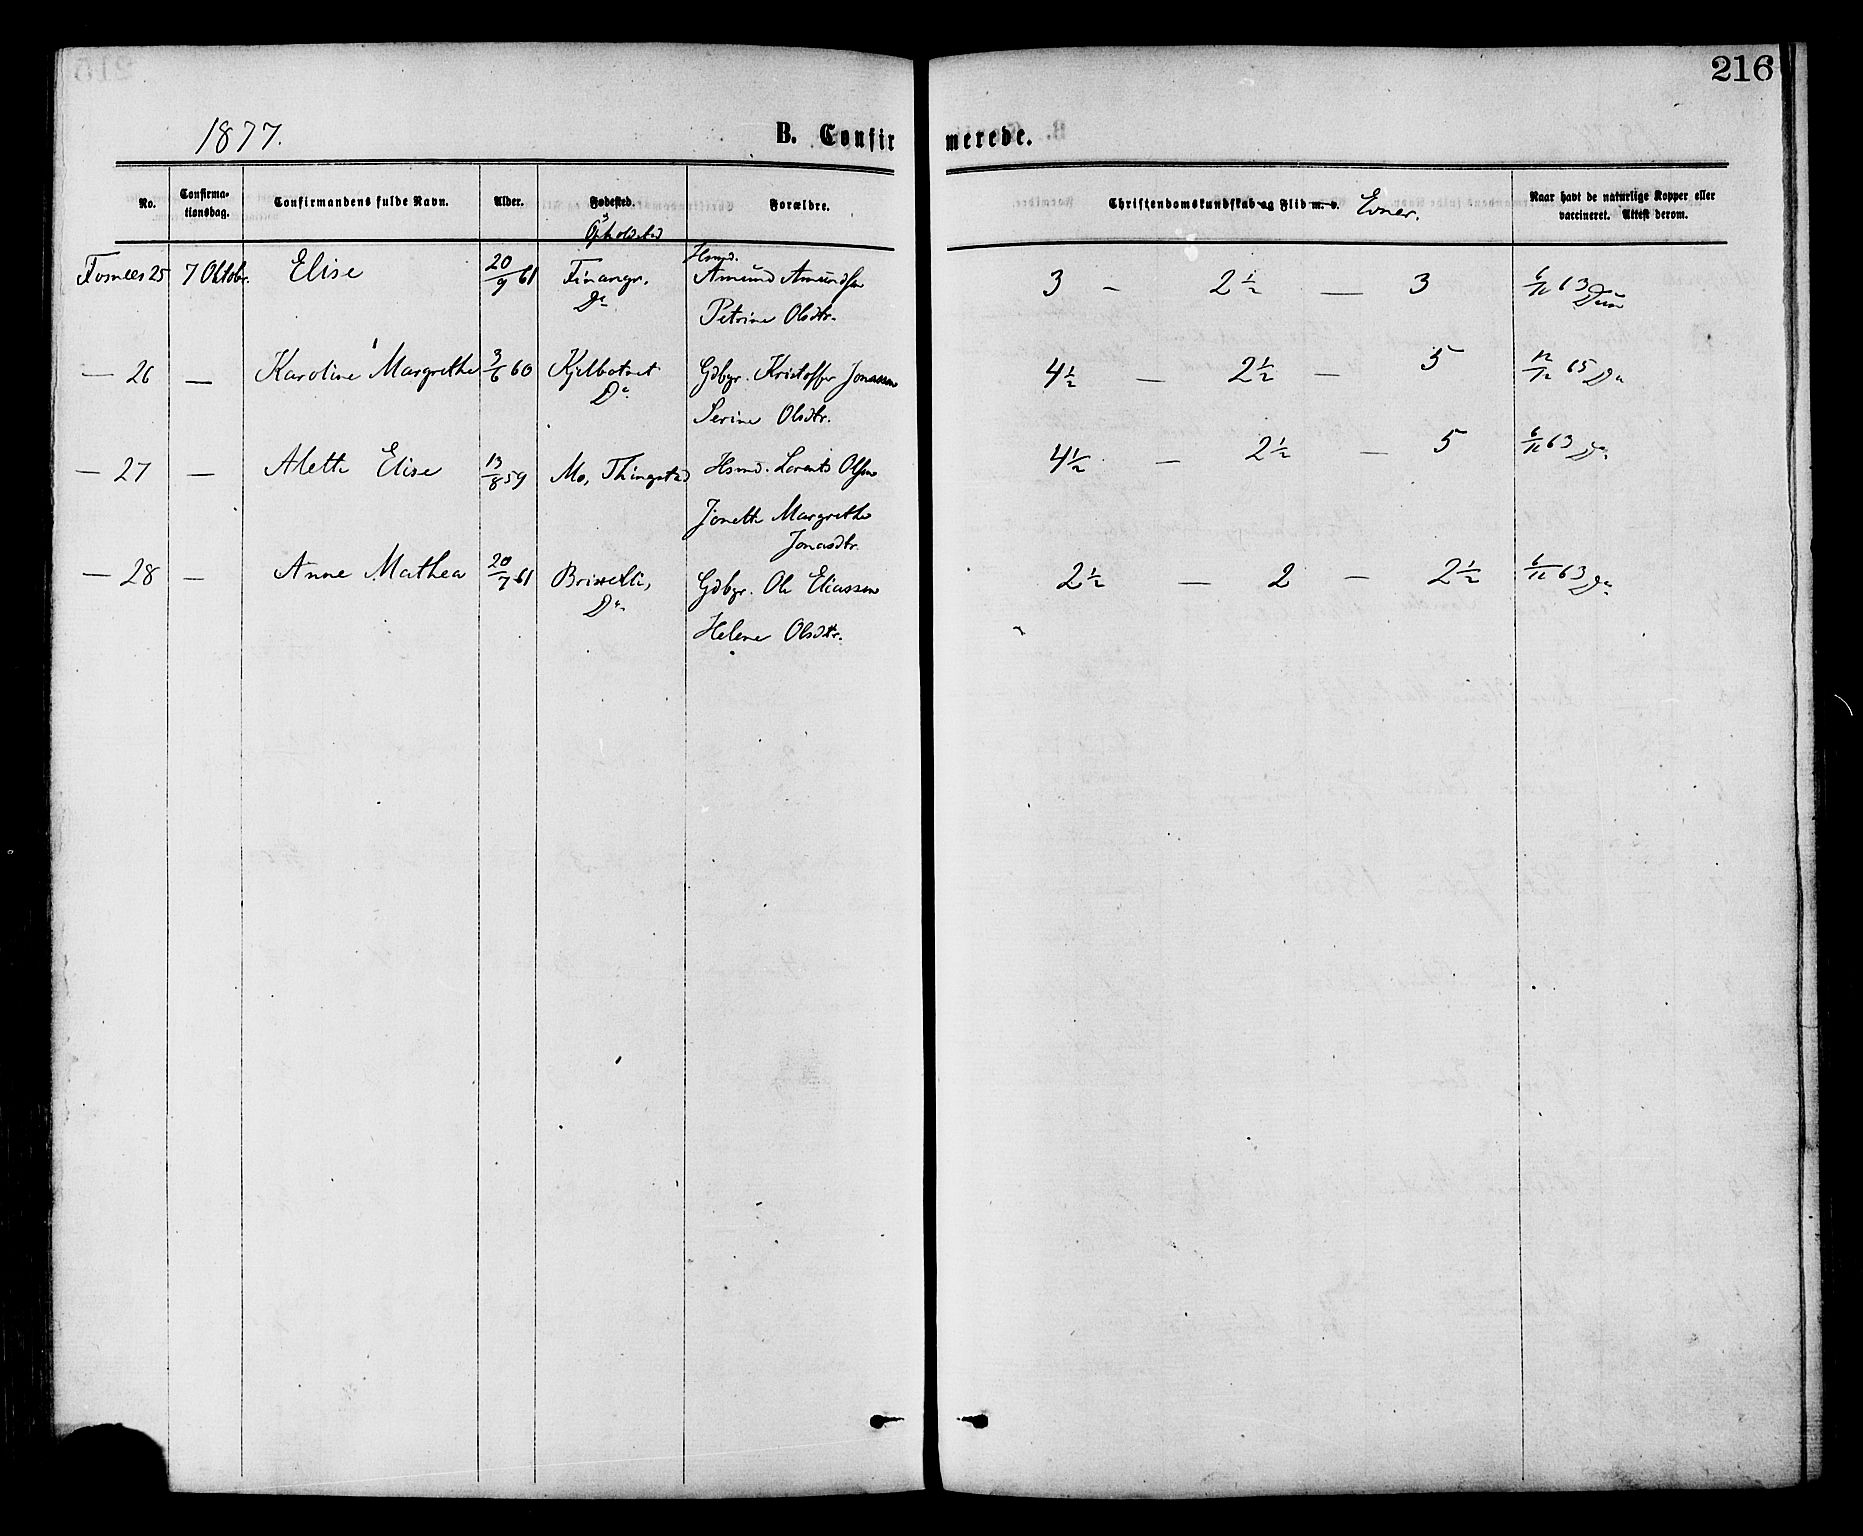 216
1877.
B. Confirmerede.
No.
Confirmationsdag.
Confirmandens fulde Navn.
Alder.
Fødested.
Opholdsted
Forældre.
Christendomskundskab og Flid m. v. Evner.
Naar havt de naturlige Kopper eller vaccineret. Attest derom.
Fosnees 25 7 Oktobr. Elise 20/9 61 Finangr. Hsmd. Amund Amundsen 3 - 2 1/2 — 3 6/11 63
Do Petrine Olsdtr.
— 26 — Karoline Margrethe 3/6 60 Kjelbotnet Gdbgr. Kristoffer Jonassen 4 1/2 — 2 1/2 — 5 12/12 65 Do
Do Serine Olsdtr.
— 27 — Alette Elise 13/8 59 Mo, Thingstad Hsmd. Lorents Olsen 4 1/2 — 2 1/2 — 5 6/11 63 Do
Jonette Margrethe
Jonasdtr.
— 28 — Anne Mathea 20/7 61 Gdbgr. Ole Eliassen 2 1/2 — 2 — 2 1/2 6/11 63 Do
Do Helene Olsdtr.